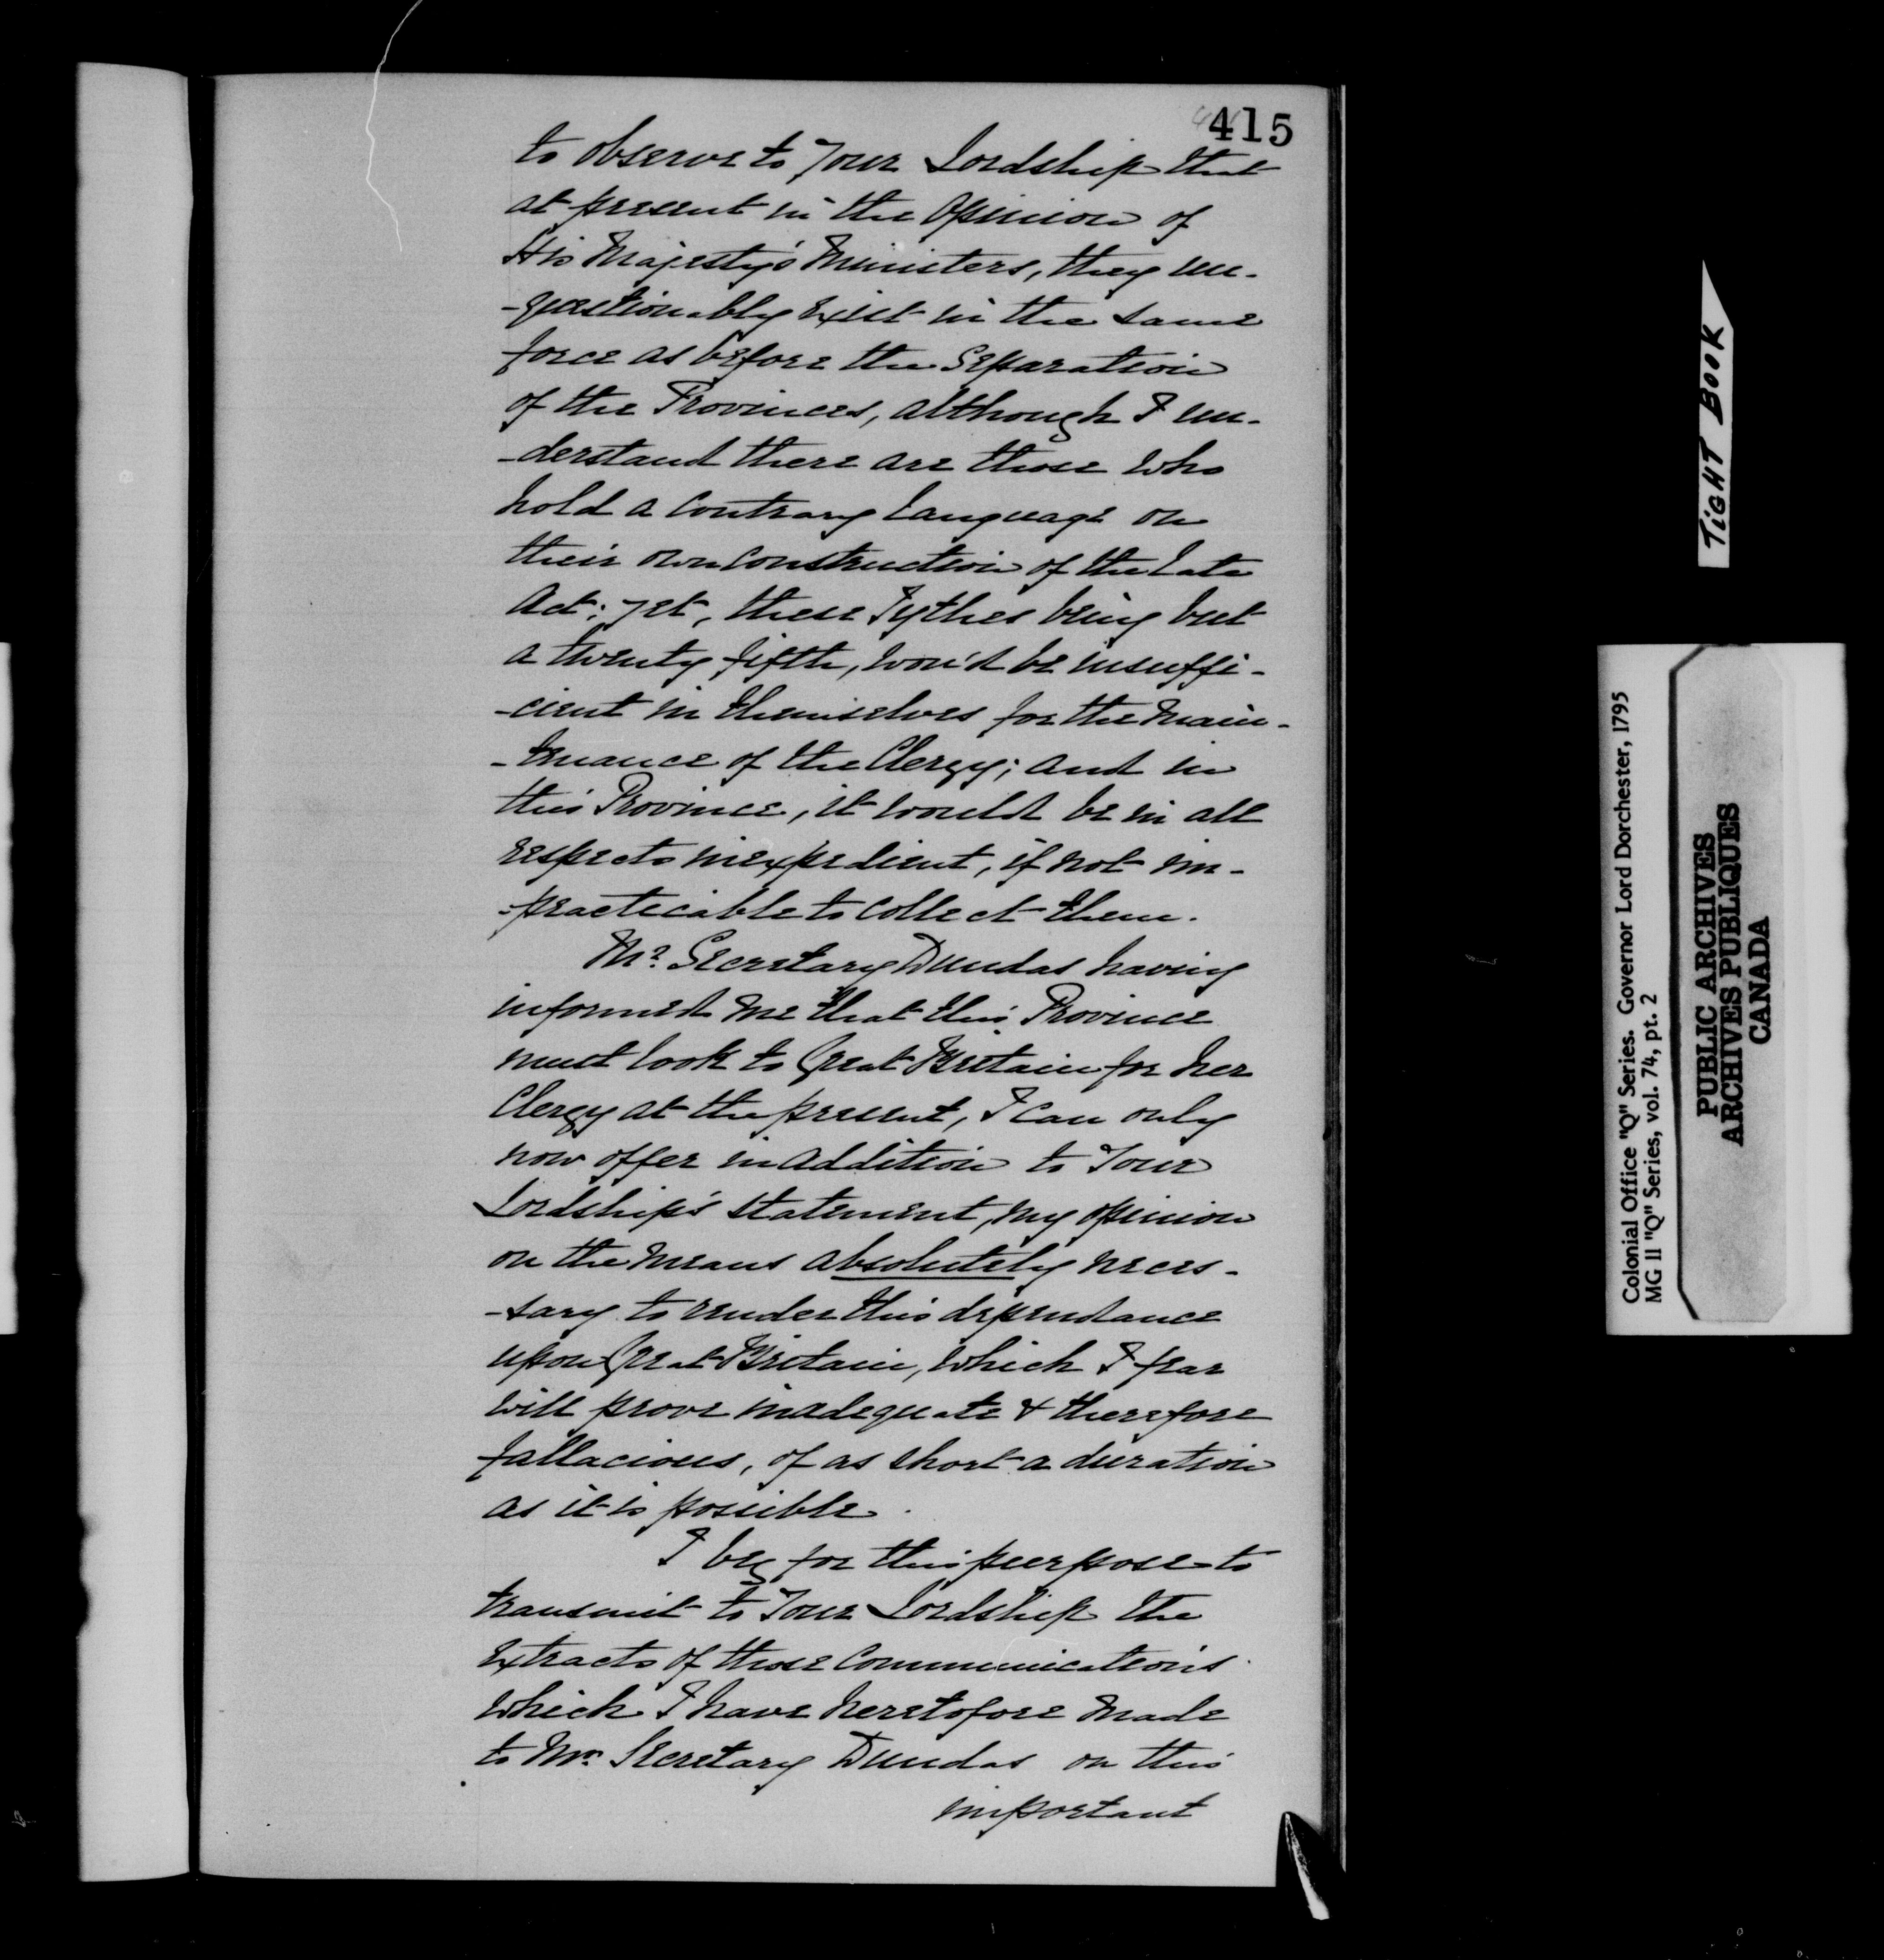 415
to observe to Your Lordship that
at present in the Opinion of
His Majesty's Ministers, they un-
-questionably exist in the same
force as before the Separation
of the Provinces, although I un-
-derstand there are those who
hold a contrary language on
their own construction of the late
Act; yet, these Tythes being but
a twenty fifth, wou'd be insuffi-
-cient in themselves for the main-
-tenance of the Clergy; and in
this Province, it would be in all
respects inexpedient, if not im-
-practicable to collect them.
Mr. Secretary Dundas having
informed me that this Province
must look to Great Britain for her
Clergy at the present, I can only
now offer in addition to Your
Lordship's statement, my opinion
on the means absolutely neces-
-sary to render this dependance
upon Great Britain, which I fear
will prove inadequate & therefore
fallacious, of as short a duration
as it is possible.
I beg for this purpose to
transmit to Your Lordship the
extracts of those communications
which I have heretofore made
to Mr. Secretary Dundas on this
important
TIGHT BOOK
Colonial Office "Q" Series. Governor Lord Dorchester, 1795
MG 11 "Q" Series, vol. 74, pt. 2
PUBLIC ARCHIVES
ARCHIVES PUBLIQUES
CANADA